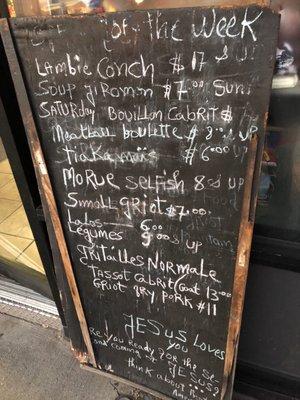 of the Week
Lambie Conch $17 & up
Soup JiRomon $7.00 Sun
Saturday Bouillon Cabrit $7
Meatball boulette $8.00 & up
$6.00
Morue Selfish 8.00 & up
Small griot $7.00
Lalos 6.00
Legumes 9.00 & up
gritailles Normale
Tassot Cabrit/Goat 13.00
Griot Fry Pork $11
Jesus Loves
You
Are you Ready for the Se-
cond coming of JESUS?
think about